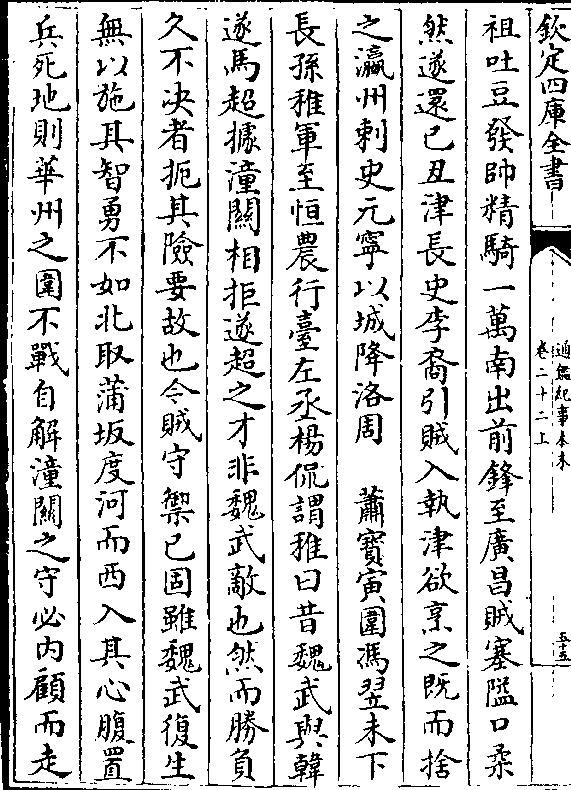 欽定四庫全書
通鑑紀事本末
卷二十二上
五十五
祖吐豆發帥精騎一萬南出前鋒至廣昌賊塞隘口柔
然遂還己丑津長史李裔引賊入執津欲烹之既而捨
之瀛州刺史元寧以城降洛周　蕭寶寅圍馮翌未下
長孫稚軍至恒農行臺左丞楊侃謂稚曰昔魏武與韓
遂馬超據潼關相拒遂超之才非魏武敵也然而勝負
久不決者扼其險要故也今賊守禦已固雖魏武復生
無以施其智勇不如北取蒲坂度河而西入其心腹置
兵死地則華州之圍不戰自解潼關之守必內顧而走